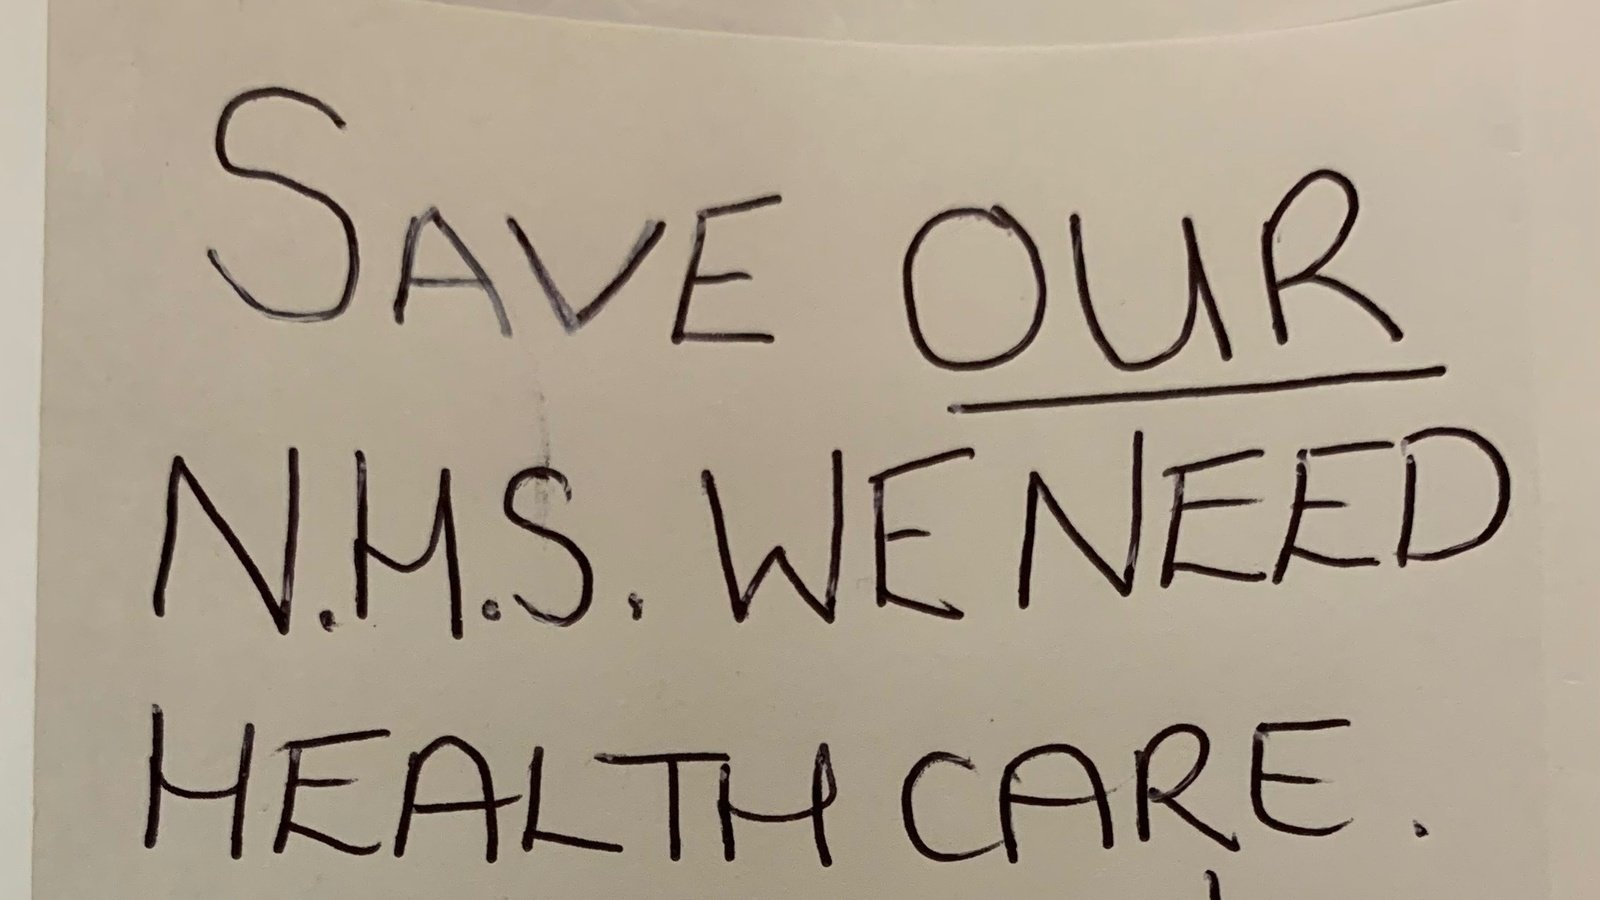 SAVE OUR
N.H.S. WE NEED
HEALTH CARE.